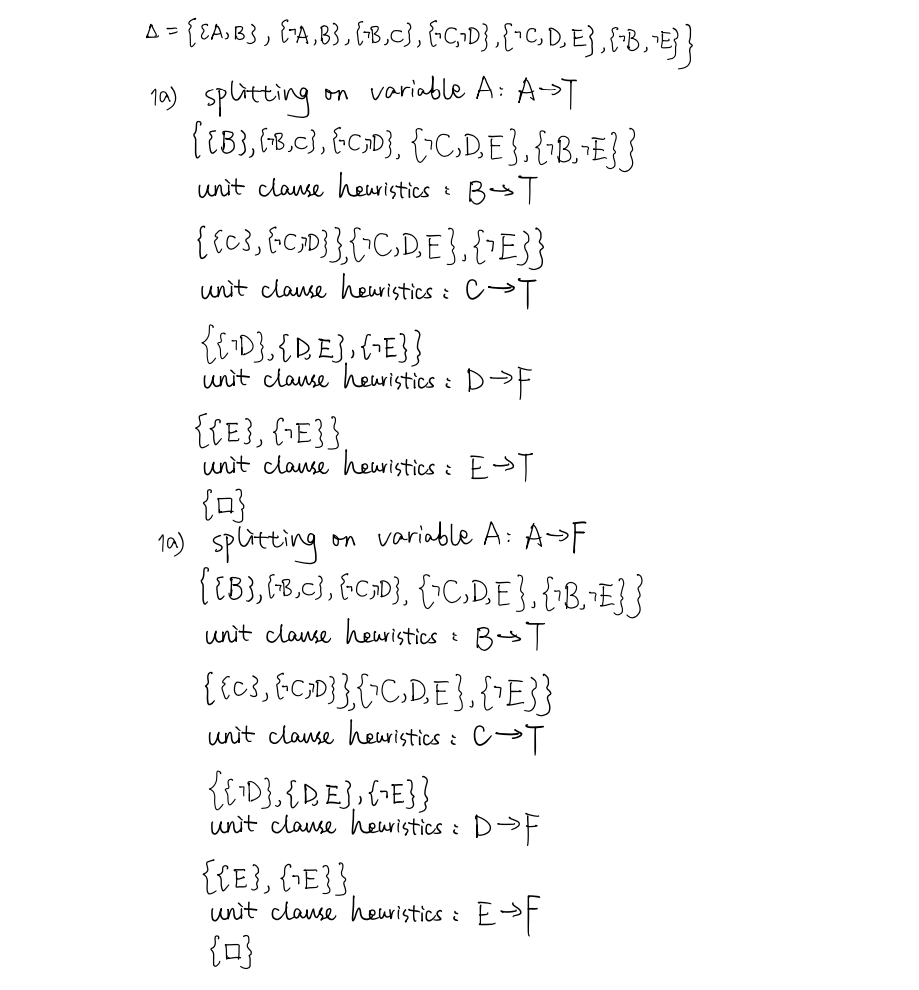 Δ = {{A,B}, {¬A,B}, {¬B,C}, {¬C,¬D}, {¬C,D,E}, {¬B,¬E}}
1a) splitting on variable A: A→T
{{B}, {¬B,C}, {¬C,¬D}, {¬C,D,E}, {¬B,¬E}}
unit clause heuristics : B→T
{{C}, {¬C,¬D}},{¬C,D,E}, {¬E}}
unit clause heuristics : C→T
{{¬D}, {D,E}, {¬E}}
unit clause heuristics : D→F
{{E}, {¬E}}
unit clause heuristics : E→T
{□}
1a) splitting on variable A: A→F
{{B}, {¬B,C}, {¬C,¬D}, {¬C,D,E}, {¬B,¬E}}
unit clause heuristics : B→T
{{C}, {¬C,¬D}},{¬C,D,E}, {¬E}}
unit clause heuristics : C→T
{{¬D}, {D,E}, {¬E}}
unit clause heuristics : D→F
{{E}, {¬E}}
unit clause heuristics : E→F
{□}